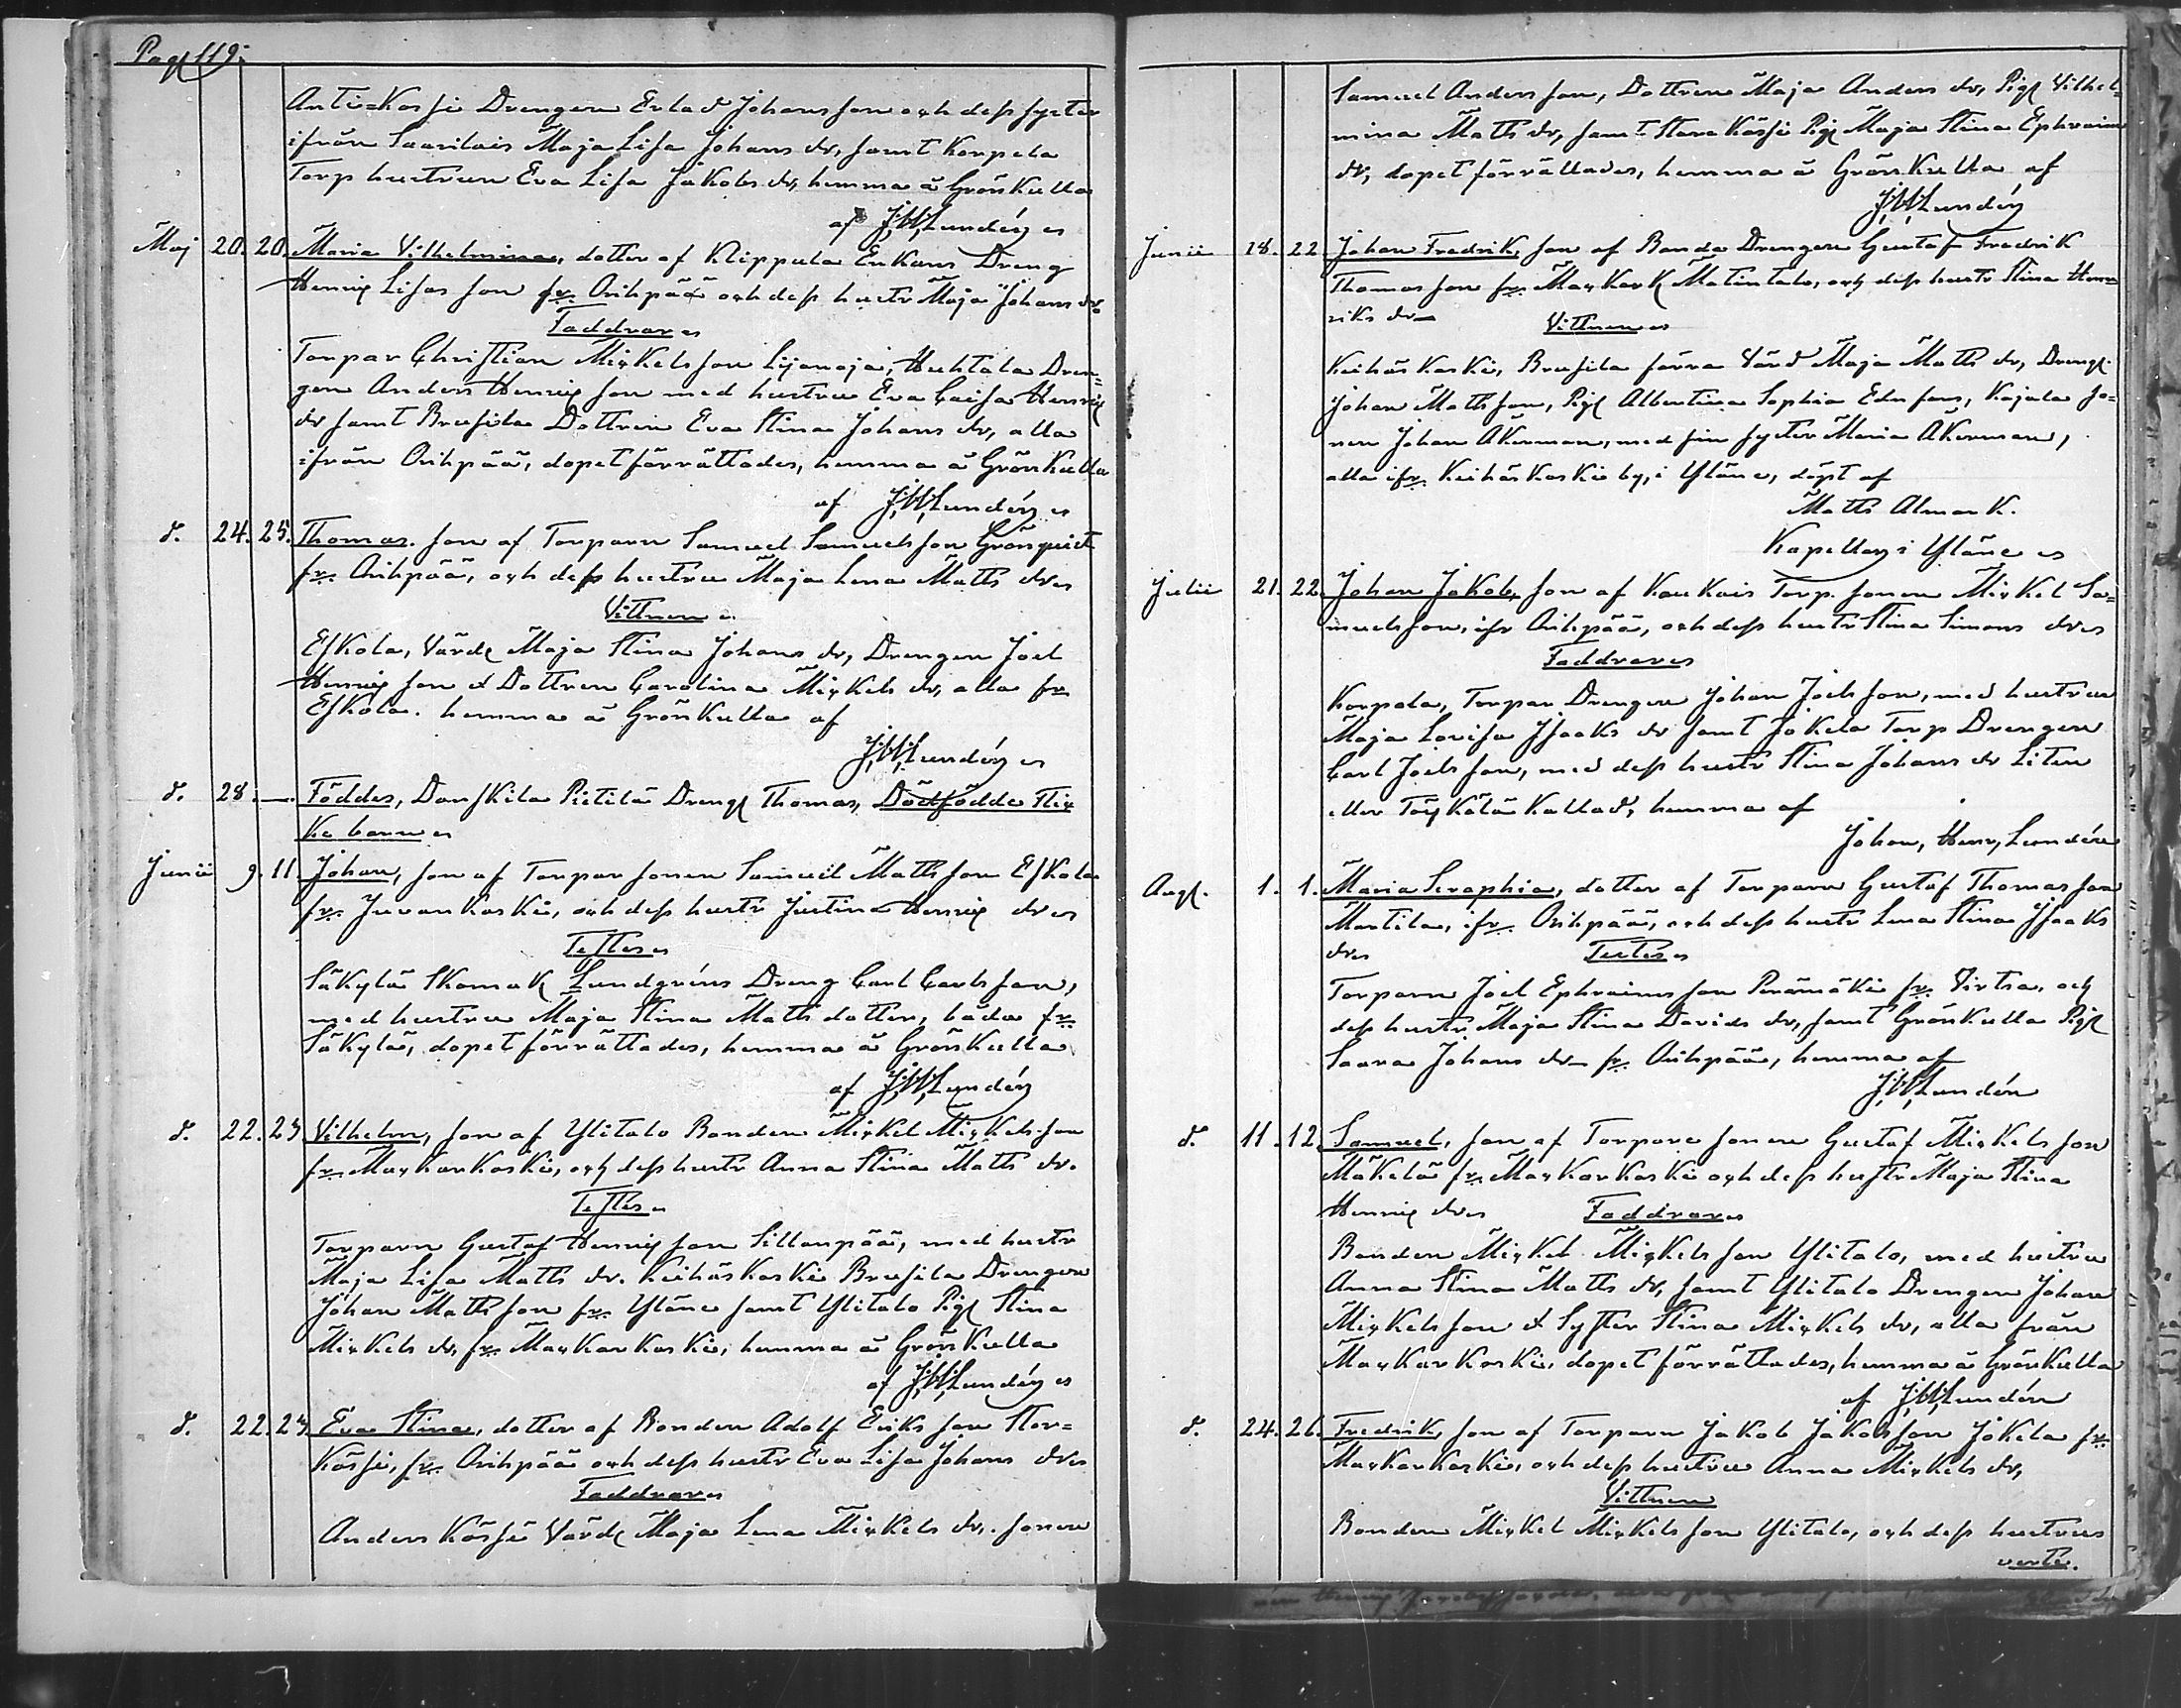 Pag 119.
Anti-Kossi Drengen Erlad Johansson och dess syster
ifrån Saarilais Maja Lisa Johans dr, samt Korpela
Torp hustrun Eva Lisa Jakobs dr, hemma å Grönkulla
af J,H,Lundén
Maj 20. 20. Maria Vilhelmina, dotter af Klippula Enkans Dreng
Henric Lisas son fr. Orihpää och dess hustr Maja Johans dr.
Faddrar
Torpar Christian Mickelsson Lijanoja, Huhtala Dren=
gen Anders Henricson med hustru Eva Caisa Henric
dr samt Brusila Dottren Eva Stina Johans dr, alla
ifrån Orihpää, dopet förrättades, hemma å Grönkulla
af J,H,Lundén
d. 24. 25. Thomas. son af Torparn Samuel Samuelsson Grönqvist
fr. Orihpää, och dess hustru Maja Lena Matts dr
Vittnen
Eskola, Värd Maja Stina Johans dr, Drengen Joel
Henricson & Dottren Carolina Mickels dr, alla fr
Eskola. hemma å Grönkulla af
J,H,Lundén
d. 28. — Föddes, Danskila Pietilä Dreng Thomas, Dödfödde Flic
ke barn
Junii 9. 11. Johan, son af Torpar sonen Samuel Mattsson Eskola
fr. Juvankoski, och dess hustr Justina Henric dr
Testes
Säkylä Skomak Lundgréns Dreng Carl Carlsson,
med hustru Maja Stina Matts dotter, båda fr
Säkylä, dopet förrättades, hemma å Grönkulla
af J,H,Lundén
d. 22. 23. Vilhelm, son af Ylitalo Bonden Mickel Mickels son
fr. Mackarkoski, och dess hustr Anna Stina Matts dr.
Testes
Torparn Gustaf Henricson Sillanpää, med hustr
Maja Lisa Matts dr. Keihäskoski Brusila Drengen
Johan Mattsson fr. Yläne samt Ylitalo Pig Stina
Mickels dr, fr. Mackarkoski, hemma å Grönkulla
af J,H,Lundén
d. 22. 24. Eva Stina, dotter af Bonden Adolf Eriksson Stor=
Kössi, fr. Orihpää och dess hustr Eva Lisa Johans dr
Faddrar
Anders Kössi Värd Maja Lena Mickels dr. sonen
Samuel Andersson, Dottren Maja Anders dr, Pig Vilhel=
mina Matts dr, samt Stora Kössi Pig Maja Stina Ephraims
dr, dopet förrättades, hemma å Grönkulla af
J,H,Lundén
Junii 18. 22 Johan Fredrik, son af Bonde Drengen Gustaf Fredrik
Thomasson fr. Mackark Matintalo, och dess hustr Stina Hen
riks dr
Vittnen
Keihäskoski, Brusila förra Värd Maja Matts dr, Dreng
Johan Mattsson, Pig Albertina Sophia Edv sons, Kajala so=
nen Johan Åkerman, med sin syster Maria Åkerman,
alla ifr. Keihäskoski by, i Yläne, döpt af
Matts Alman K.
Kapellan i Yläne
Julii 21. 22. Johan Jakob, son af Kaukais Torp. sonen Mickel Sa=
muelsson, ifr Orihpää, och dess hustr Stina Simons dr
Faddrar
Korpola, Torpar Drengen Johan Joelsson, med hustru
Maja Lovisa Isaaks dr samt Jokela Torp Drengen
Carl Joelsson, med dess hustr Stina Johans dr Liten
eller Töykälä Kallad, hemma af
Johan, Henr, Lundén
Aug. 1. 1. Maria Seraphia, dotter af Torparn Gustaf Thomasson
Martila, ifr. Orihpää, och dess hustr Lena Stina Isaaks
dr
Testes
Torparn Joel Ephraimsson Perämäki fr. Virtsa, och
dess hustr Maja Stina Davids dr, samt Grönkulla Pig
Saara Johans dr fr. Orihpää, hemma af
J,H,Lundén
d. 11. 12. Samuel, son af Torpare sonen Gustaf Mickelsson
Mäkelä fr. Mackarkoski och dess hustr Maja Stina
Henric dr
Faddrar
Bonden Mickel Mickelsson Ylitalo, med hustru
Anna Stina Matts dr, samt Ylitalo Drengen Johan
Mickelsson & Syster Stina Mickels dr, alla från
Mackarkoski, dopet förrättades, hemma å Grönkulla
af J,H,Lundén
d. 24. 26. Fredrik, son af Torparn Jakob Jakobsson Jokela fr.
Mackarkoski, och dess hustru Anna Mickels dr,
Vittnen
Bonden Mickel Mickelsson Ylitalo, och dess hustrus
verte.